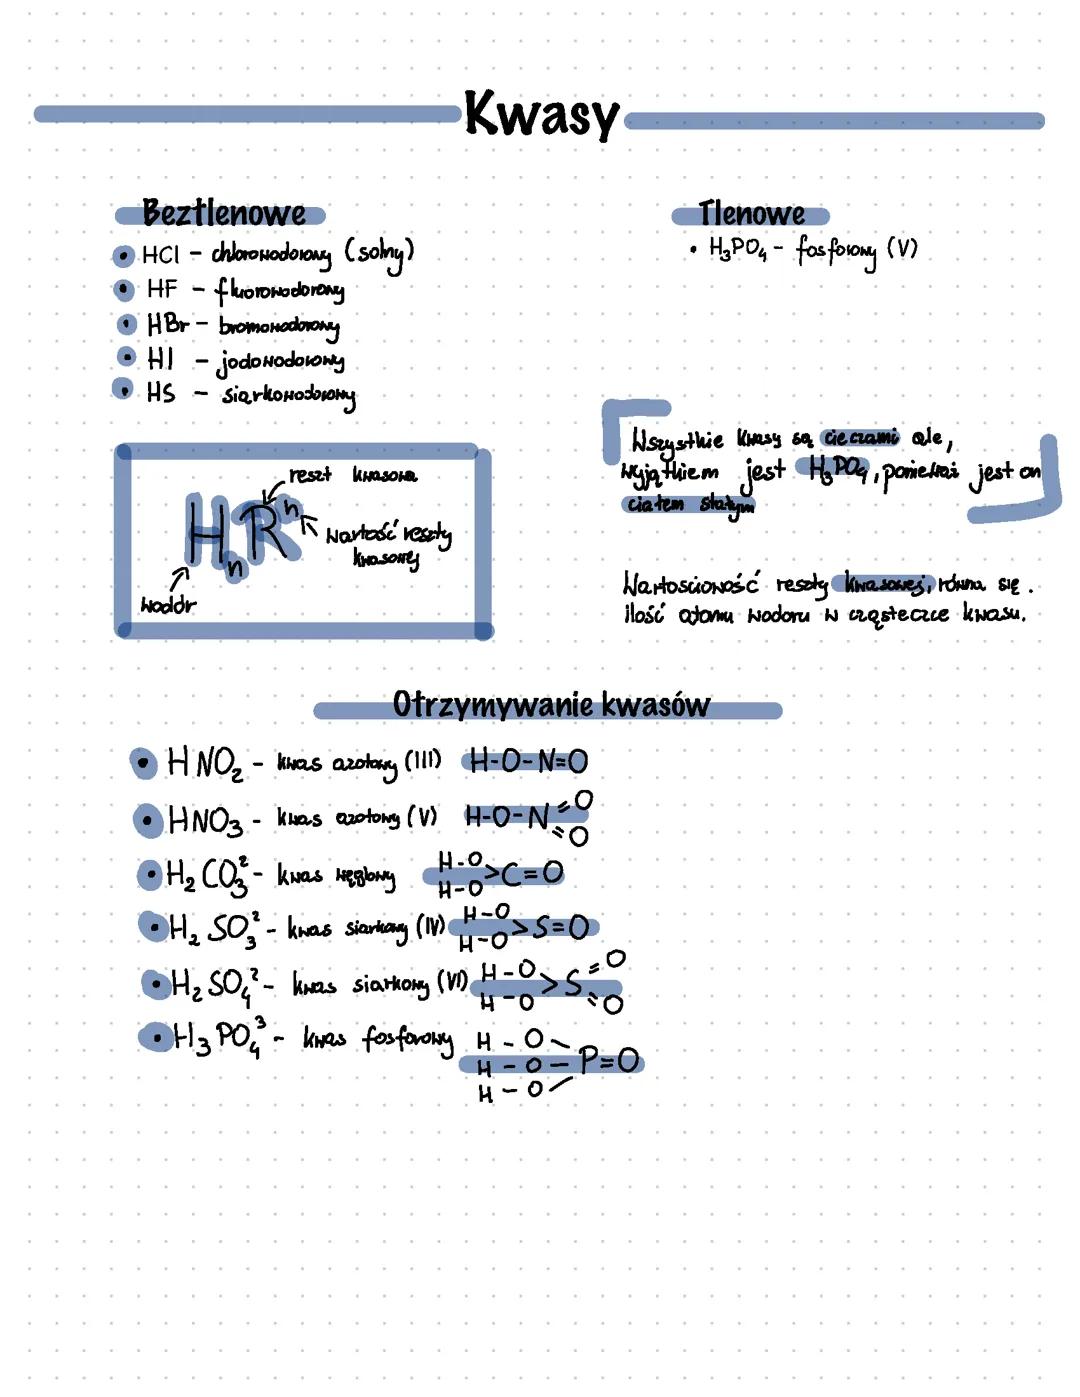 Kwasy
Beztlenowe
• HCl - chlorowodorowy (solny)
• HF - fluorowodorowy
• HBr - bromowodorowy
• HI - jodowodorowy
• HS - siarkowodorowy
Tlenowe
• H₃PO₄ - fosforowy (V)
reszt kwasowa
HₙRⁿ
wartość reszty
kwasowej
wodór
Wszystkie kwasy są cieczami ale,
wyjątkiem jest H₃PO₄, ponieważ jest on
ciałem stałym
Wartościowość reszty kwasowej, równa się.
ilość atomu wodoru w cząsteczce kwasu.
Otrzymywanie kwasów
• HNO₂ - kwas azotowy (III) H-O-N=O
• HNO₃ - kwas azotowy (V) H-O-N=O
=O
• H₂CO₃² - kwas węglowy H-O>C=O
H-O
• H₂SO₃² - kwas siarkowy (IV) H-O>S=O
H-O
• H₂SO₄² - kwas siarkowy (VI) H-O>S=O
H-O =O
• H₃PO₄³ - kwas fosforowy H-O
H-O-P=O
H-O